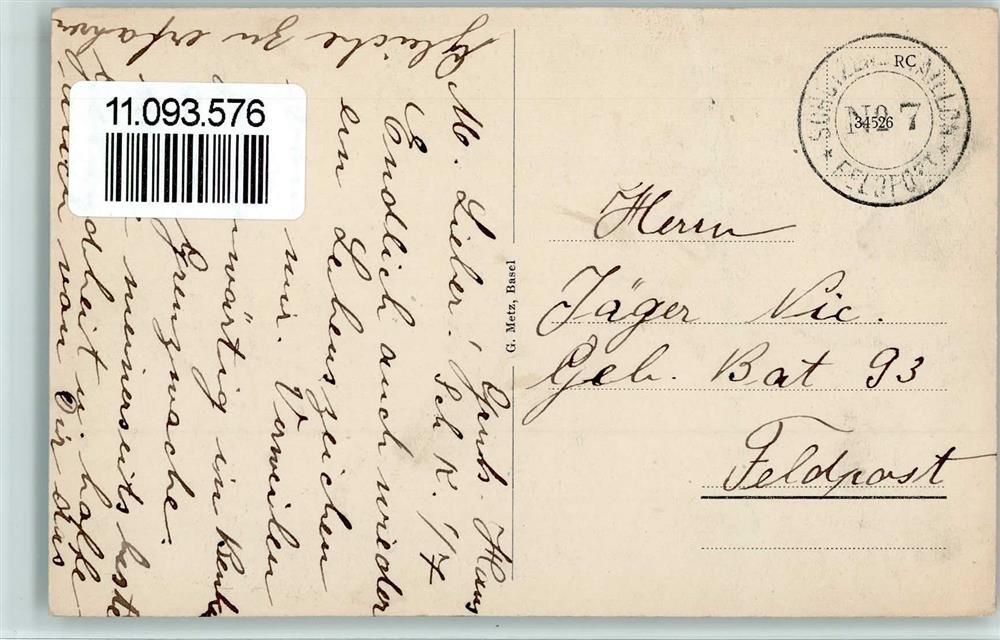 M. Lieber!
Endlich auch wieder
ein Lebenszeichen
mir. Verweilen
wärtig in
Grenzwache.
meinerseits beste
dheit u hoffe
von Dir das
gleiche zu erfahren
Gruß. Hans
Sch K. 1/7
G. Metz, Basel
RC
No 7
34526
FELDPOST
Herrn
Jäger Nic.
Geb. Bat 93
Feldpost
11.093.576